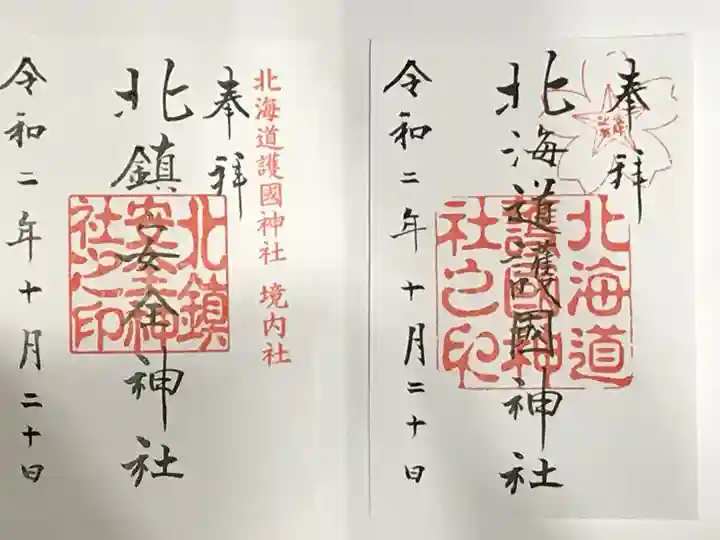 奉拝
北海道護國神社
北海道
護國神
社之印
令和二年十月二十日
北海道護國神社 境内社
奉拝
北鎮安全神社
北鎮
安全神
社之印
令和二年十月二十日